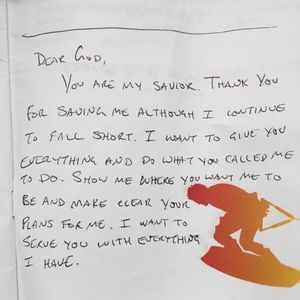 DEAR GOD,
YOU ARE MY SAVIOR. THANK YOU
FOR SAVING ME ALTHOUGH I CONTINUE
TO FALL SHORT. I WANT TO GIVE YOU
EVERYTHING AND DO WHAT YOU CALLED ME
TO DO. SHOW ME WHERE YOU WANT ME TO
BE AND MAKE CLEAR YOUR
PLANS FOR ME. I WANT TO
SERVE YOU WITH EVERYTHING
I HAVE.